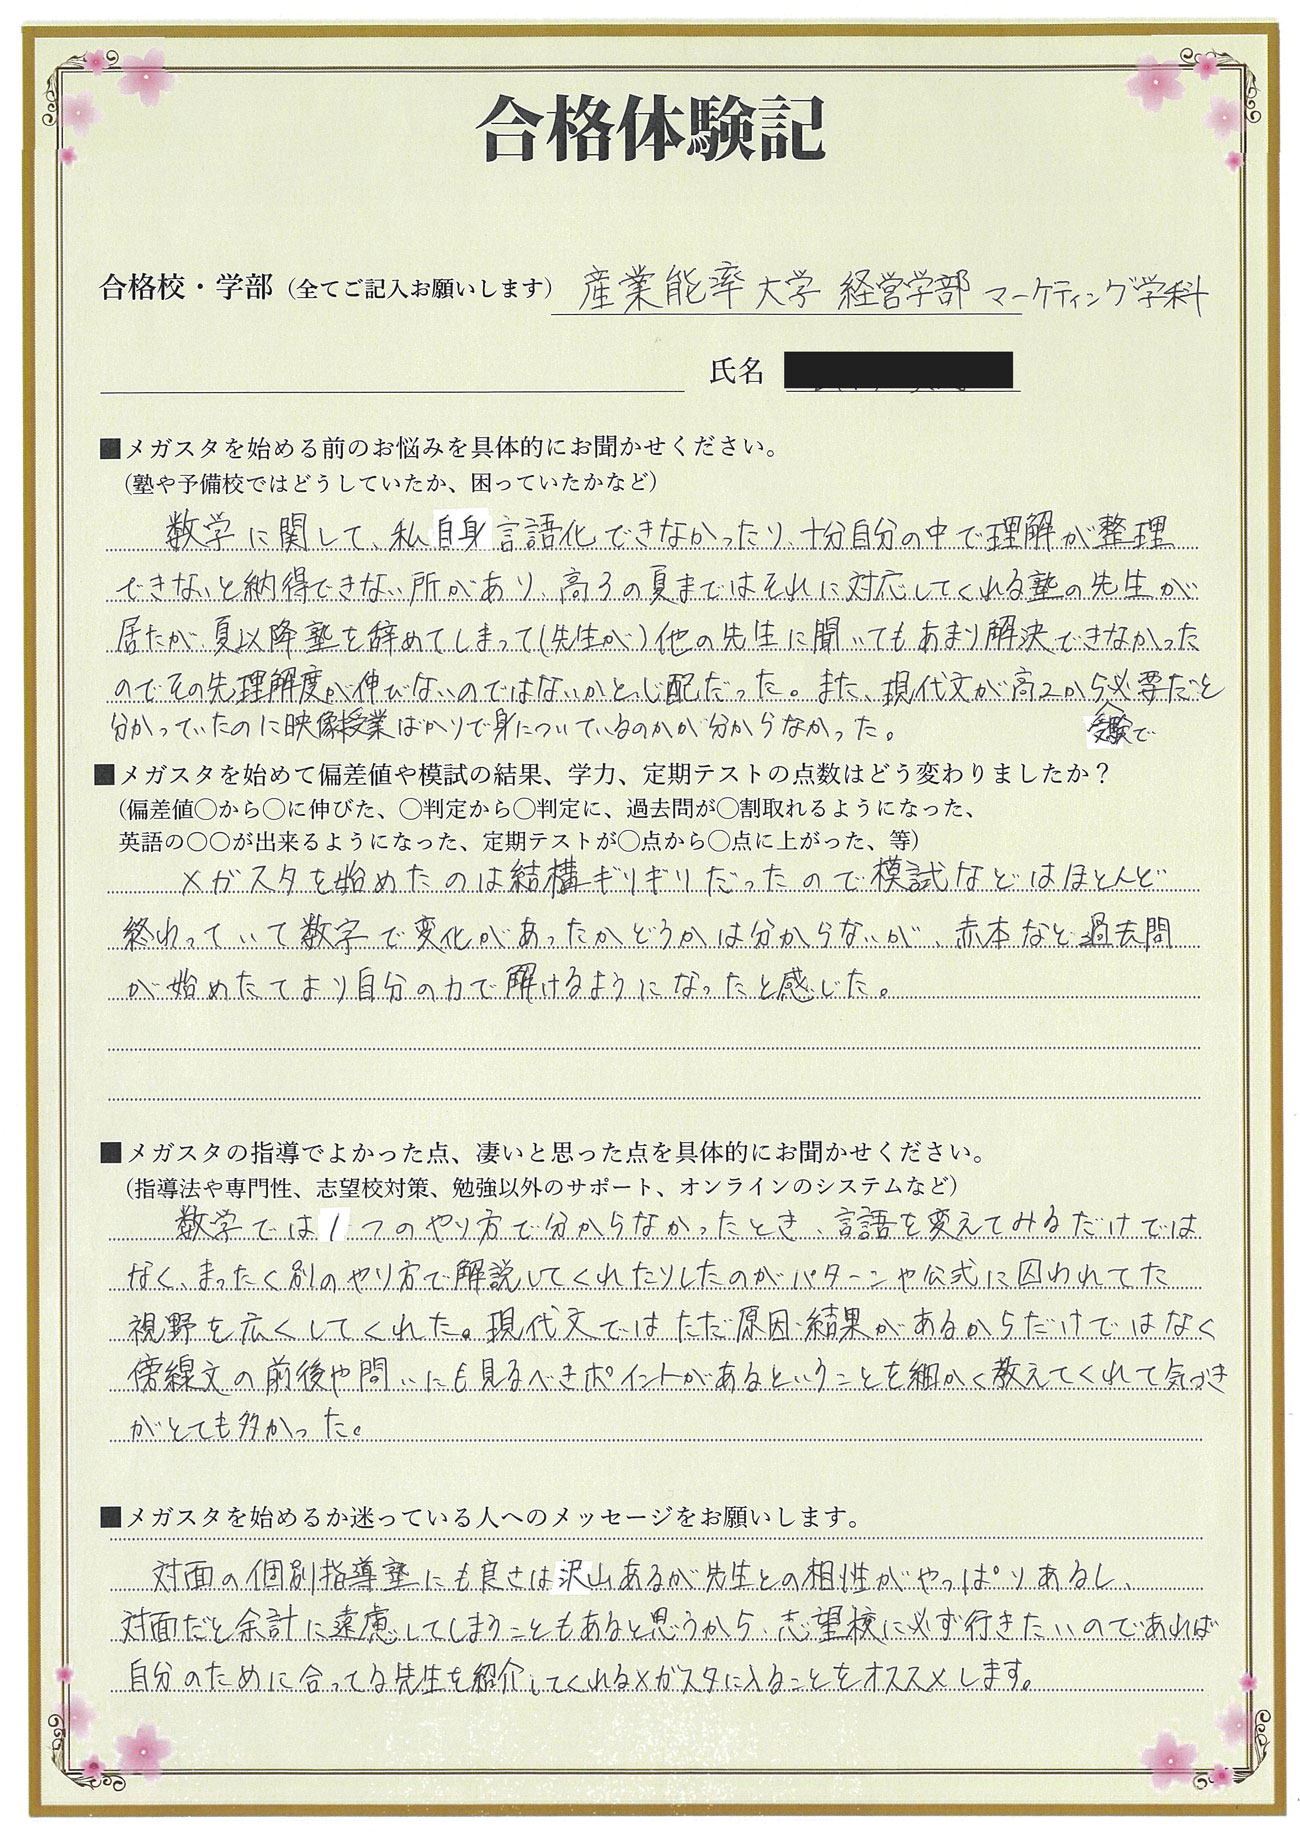 合格体験記
合格校・学部（全てご記入お願いします） 産業能率大学 経営学部 マーケティング学科
氏名
■メガスタを始める前のお悩みを具体的にお聞かせください。
（塾や予備校ではどうしていたか、困っていたかなど）
数学に関して、私自身言語化できなかったり、十分自分の中で理解が整理
できないと納得できない所があり、高3の夏まではそれに対応してくれる塾の先生が
居たが、夏以降塾を辞めてしまって（先生が）他の先生に聞いてもあまり解決できなかった
のでその先理解度が伸びないのではないかと心配だった。また、現代文が高2から必要だと
受験で
分かっていたのに映像授業ばかりで身についているのかが分からなかった。
■メガスタを始めて偏差値や模試の結果、学力、定期テストの点数はどう変わりましたか？
（偏差値〇から〇に伸びた、〇判定から〇判定に、過去問が〇割取れるようになった、
英語の〇〇が出来るようになった、定期テストが〇点から〇点に上がった、等）
メガスタを始めたのは結構ギリギリだったので模試などはほとんど
終わっていて数字で変化があったかどうかは分からないが、赤本など過去問
が始めたてより自分の力で解けるようになったと感じた。
■メガスタの指導でよかった点、凄いと思った点を具体的にお聞かせください。
（指導法や専門性、志望校対策、勉強以外のサポート、オンラインのシステムなど）
数学では1つのやり方で分からなかったとき、言語を変えてみるだけでは
なく、まったく別のやり方で解説してくれたりしたのがパターンや公式に囚われてた
視野を広くしてくれた。現代文ではただ原因・結果があるからだけではなく
傍線文の前後や問いにも見るべきポイントがあるということを細かく教えてくれて気づき
がとても多かった。
■メガスタを始めるか迷っている人へのメッセージをお願いします。
対面の個別指導塾にも良さは沢山あるが先生との相性がやっぱりあるし、
対面だと余計に遠慮してしまうこともあると思うから、志望校に必ず行きたいのであれば
自分のために合ってる先生を紹介してくれるメガスタに入ることをオススメします。